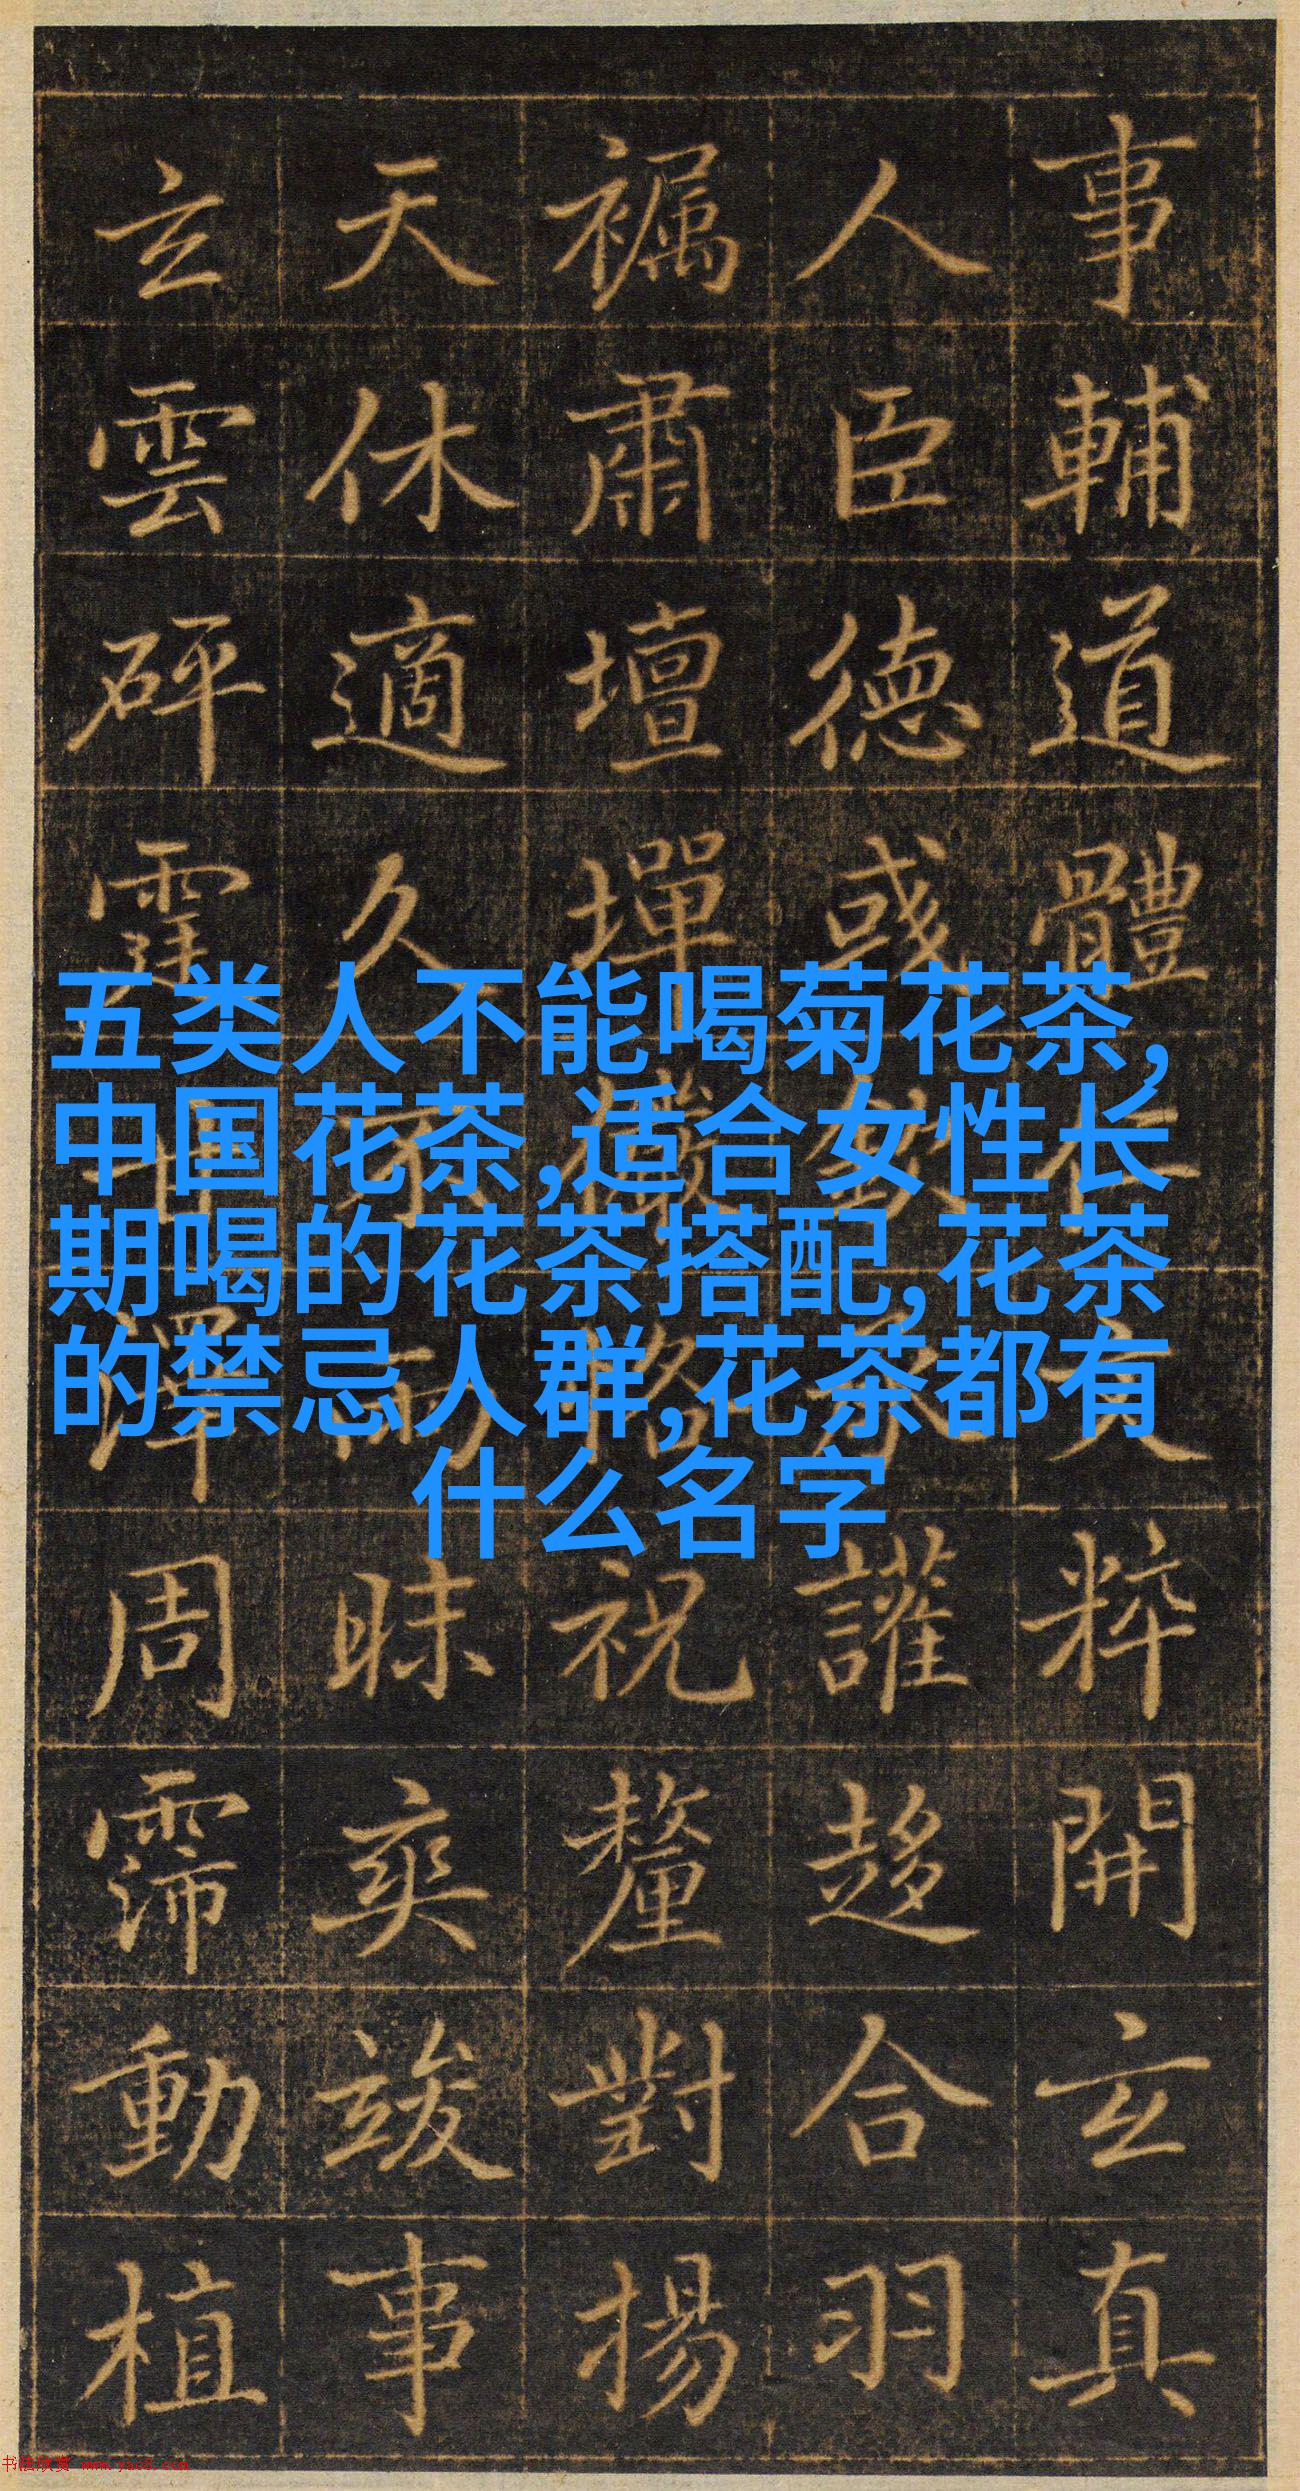 事輔道體仁文粹開玄真
人臣德彧欽承讙趍合羽
肅壇墠恪祝釐對揚
天休適久不雨昧爽竣事
玄雲砰霆甘澤周霈動植
五类人不能喝菊花茶,
中国花茶,适合女性长
期喝的花茶搭配,花茶
的禁忌人群,花茶都有
什么名字
书法欣赏 www.yac8.com